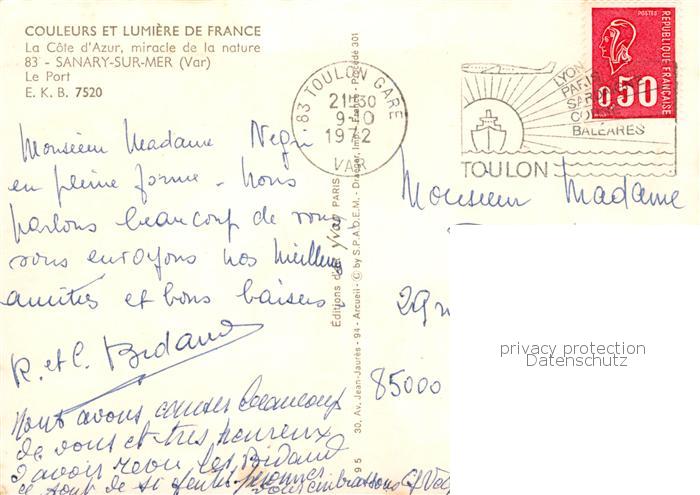 COULEURS ET LUMIÈRE DE FRANCE
La Côte d'Azur, miracle de la nature
83 - SANARY-SUR-MER (Var)
Le Port
E. K. B. 7520
Monsieur Madame Negri
en pleine forme - Nous
parlons beaucoup de vous
vous envoyons nos meilleures
amitiés et bons baisers
R. et C. Bidaud
Nous avons causer beaucoup
de vous et très heureux
d'avoir revu les Bidaud
ce sont de si gentils personnes
vous embrassons
Editions d'art yvon PARIS
Draeger, Imp. France - Procédé 301
95 Av. Jean-Jaurès - 94 - Arcueil - © by S.P.A.D.E.M.
83 TOULON GARE
21H30
9-10
1972
VAR
LYON
PARIS
BALEARES
TOULON
POSTES
REPUBLIQUE FRANÇAISE
0,50
Monsieur Madame
29
85000
privacy protection
Datenschutz